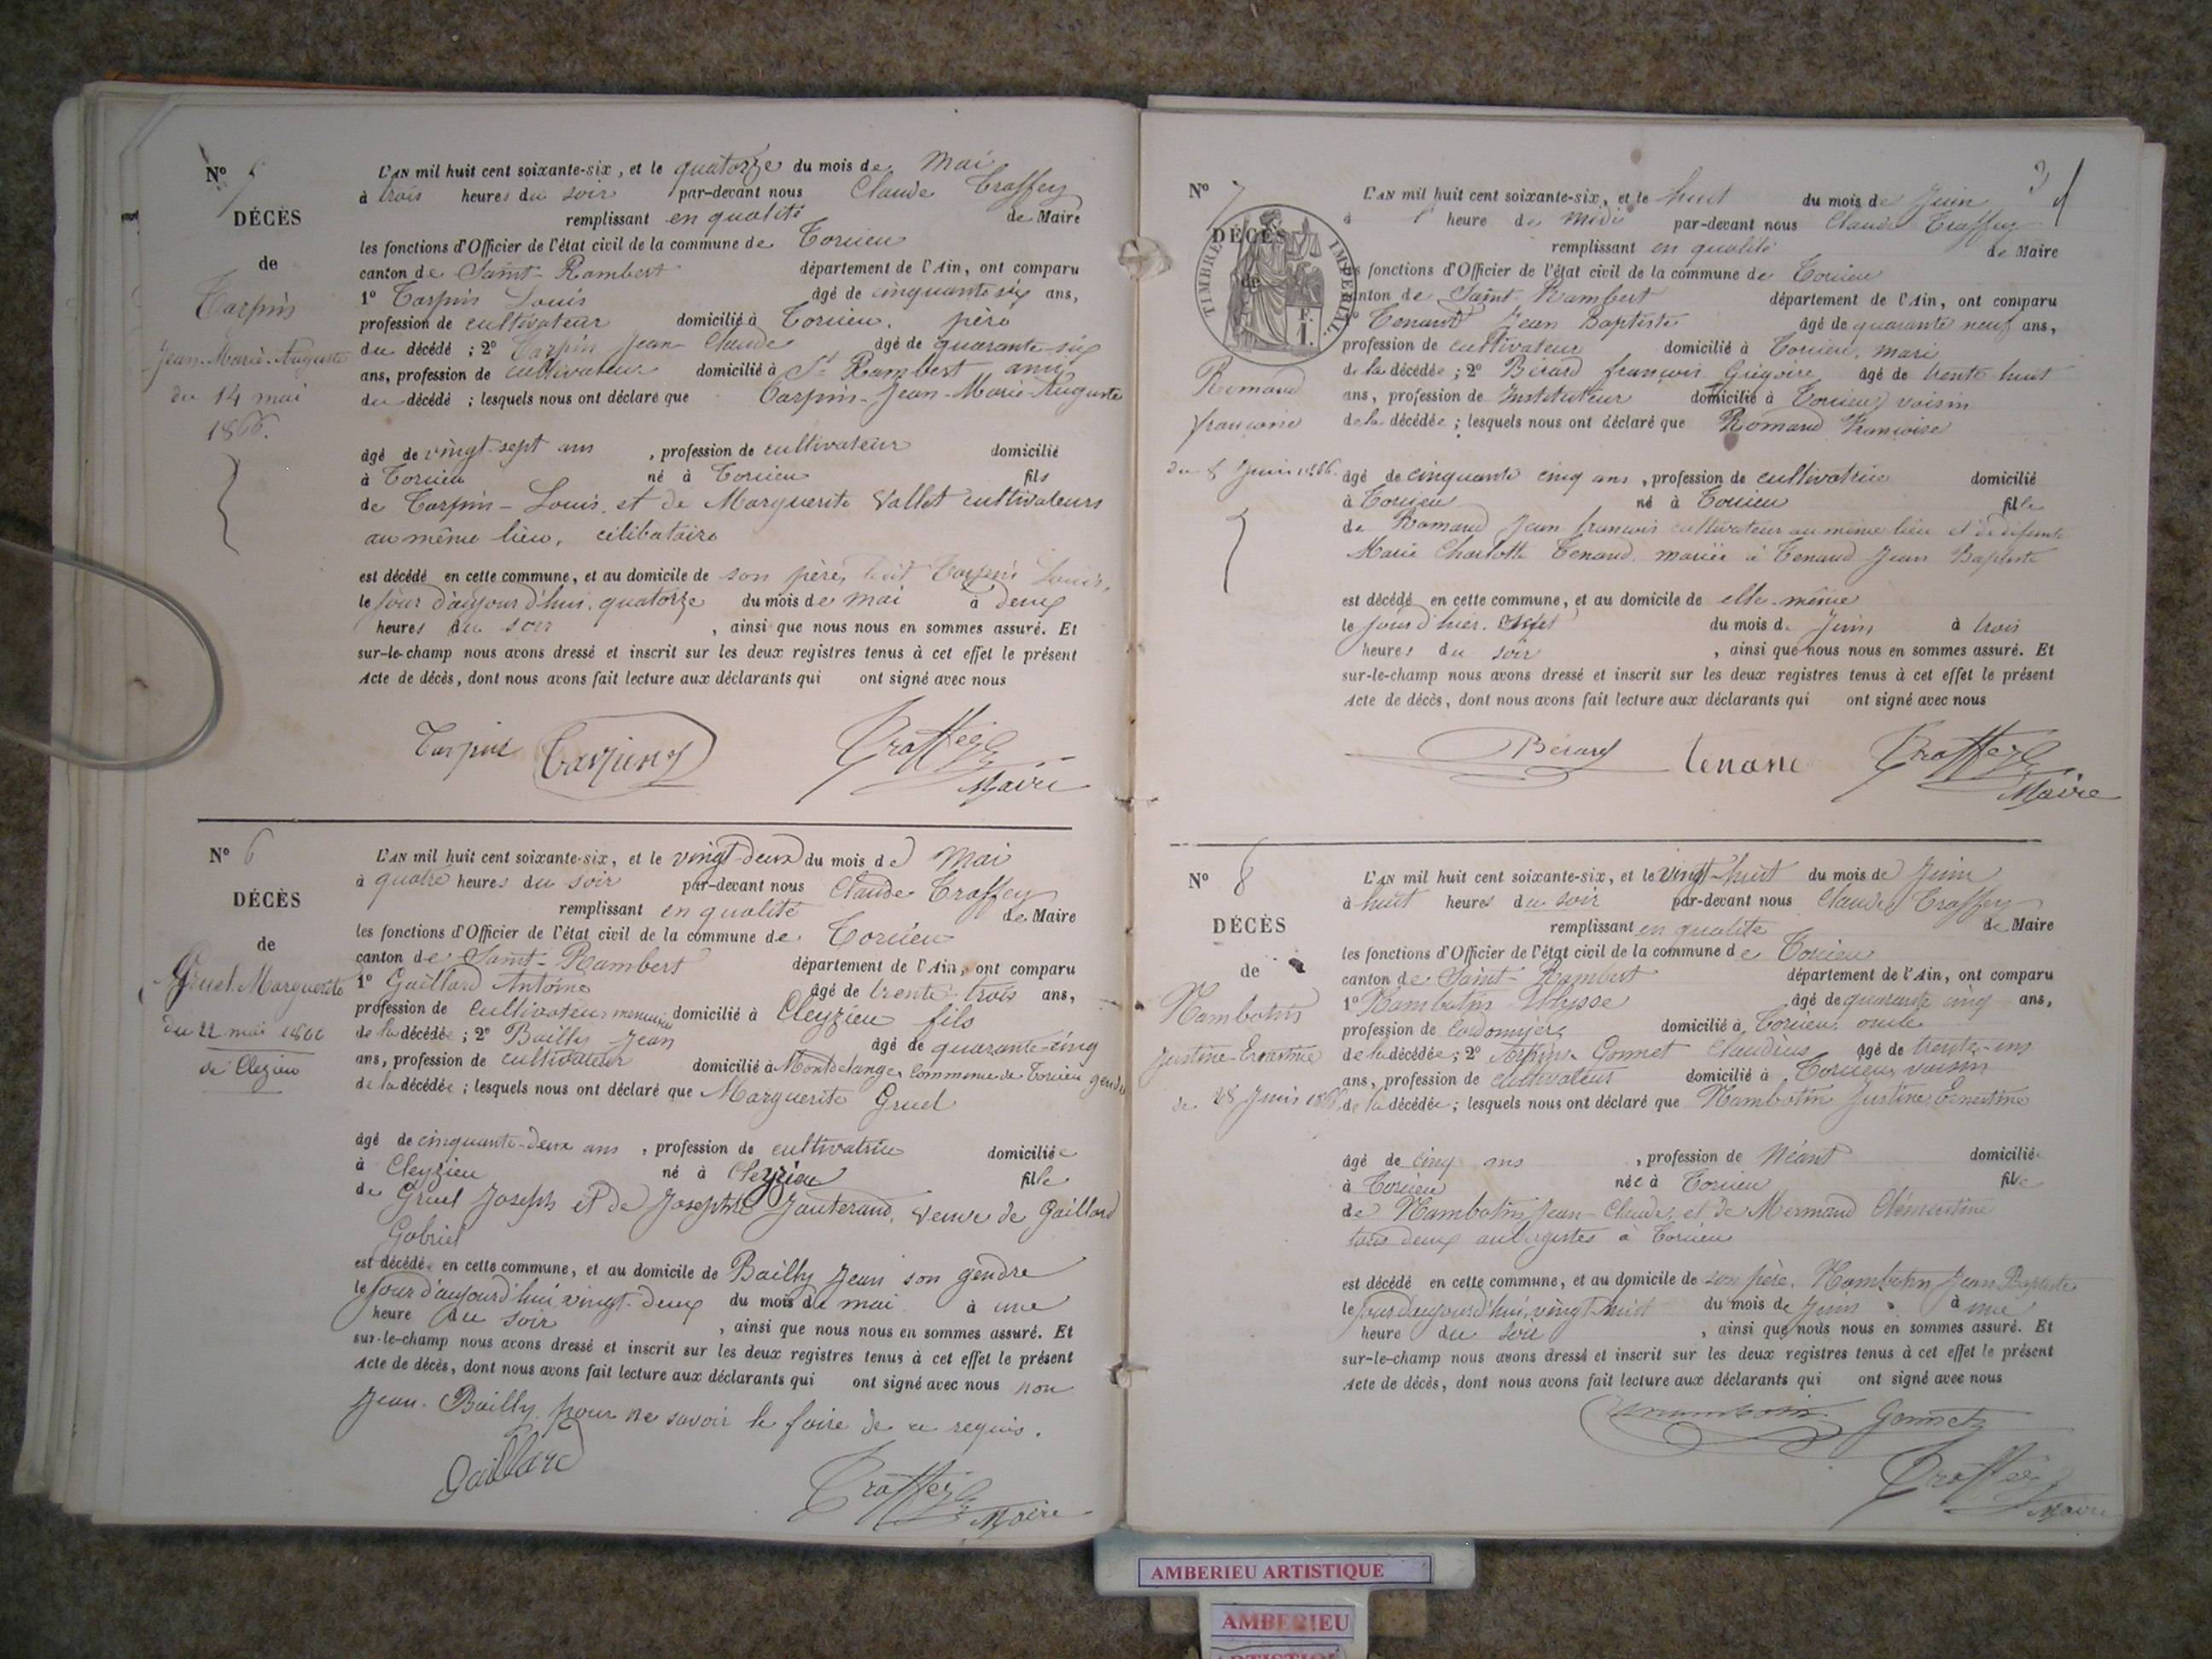 Nº 5
DÉCÈS
de
Tarpin
Jean-Marie-Auguste
du 14 mai
1866.
L'AN mil huit cent soixante-six, et le quatorze du mois de Mai
à trois heures du soir par-devant nous Claude Traffey
remplissant en qualité de Maire
les fonctions d'Officier de l'état civil de la commune de Torcieu
canton de Saint-Rambert département de l'Ain, ont comparu
1º Tarpin Louis âgé de cinquante six ans,
profession de cultivateur domicilié à Torcieu, père
du décédé ; 2º Tarpin Jean Claude âgé de quarante-six
ans, profession de cultivateur domicilié à St Rambert ami
du décédé ; lesquels nous ont déclaré que Tarpin-Jean-Marie-Auguste
âgé de vingt-sept ans , profession de cultivateur domicilié
à Torcieu né à Torcieu fils
de Tarpin-Louis, et de Marguerite Vallet cultivateurs
au même lieu, célibataire
est décédé en cette commune, et au domicile de son père, Tarpin Louis,
le jour d'aujourd'hui, quatorze du mois de mai à deux
heures du soir , ainsi que nous nous en sommes assuré. Et
sur-le-champ nous avons dressé et inscrit sur les deux registres tenus à cet effet le présent
Acte de décès, dont nous avons fait lecture aux déclarants qui ont signé avec nous
Tarpin Traffey
Maire
Nº 6
DÉCÈS
de
Gruel Marguerite
du 22 mai 1866
de Clezieu
L'AN mil huit cent soixante-six, et le vingt-deux du mois de Mai
à quatre heures du soir par-devant nous Claude Traffey
remplissant en qualité de Maire
les fonctions d'Officier de l'état civil de la commune de Torcieu
canton de Saint-Rambert département de l'Ain, ont comparu
1º Gaillard Antoine âgé de trente-trois ans,
profession de cultivateur domicilié à Cleyzieu fils
de la décédée ; 2º Bailly Jean âgé de quarante-cinq
ans, profession de cultivateur domicilié à Montdelange, Commune de Torcieu gendre
de la décédée ; lesquels nous ont déclaré que Marguerite Gruel
âgé de cinquante-deux ans , profession de cultivatrice domiciliée
à Cleyzieu né à Cleyzieu fille
de Gruel Joseph et de Josephte Jauterand, veuve de Gaillard
Gabriel
est décédée en cette commune, et au domicile de Bailly Jean son gendre
le jour d'aujourd'hui, vingt-deux du mois de mai à une
heure du soir , ainsi que nous nous en sommes assuré. Et
sur-le-champ nous avons dressé et inscrit sur les deux registres tenus à cet effet le présent
Acte de décès, dont nous avons fait lecture aux déclarants qui ont signé avec nous non
Jean Bailly, pour ne savoir le faire de ce requis.
Gaillard Traffey
Maire
3
Nº 7
DÉCÈS
de
TIMBRE IMPÉRIAL.
1 F.
Romand
françoise
du 8 Juin 1866.
L'AN mil huit cent soixante-six, et le huit du mois de Juin
à heure de Midi par-devant nous Claude Traffey
remplissant en qualité de Maire
les fonctions d'Officier de l'état civil de la commune de Torcieu
canton de Saint-Rambert département de l'Ain, ont comparu
1º Tenand Jean Baptiste âgé de quarante neuf ans,
profession de cultivateur domicilié à Torcieu, mari
de la décédée ; 2º Bérard françois Grégoire âgé de trente huit
ans, profession de Instituteur domicilié à Torcieu, voisin
de la décédée ; lesquels nous ont déclaré que Romand Françoise
âgé de cinquante cinq ans , profession de cultivatrice domicilié
à Torcieu né à Torcieu fille
de Romand Jean françois cultivateur au même lieu et de défunte
Marie Charlotte Tenand, mariée à Tenand Jean Baptiste
est décédé en cette commune, et au domicile de elle-même
le jour d'hier, sept du mois de Juin à trois
heures du soir , ainsi que nous nous en sommes assuré. Et
sur-le-champ nous avons dressé et inscrit sur les deux registres tenus à cet effet le présent
Acte de décès, dont nous avons fait lecture aux déclarants qui ont signé avec nous
Bérard Tenand Traffey
Maire
Nº 8
DÉCÈS
de
Nambotin
Justine-Ernestine
du 28 Juin 1866
L'AN mil huit cent soixante-six, et le vingt-huit du mois de Juin
à huit heures du soir par-devant nous Claude Traffey
remplissant en qualité de Maire
les fonctions d'Officier de l'état civil de la commune de Torcieu
canton de Saint-Rambert département de l'Ain, ont comparu
1º Nambotin Ulysse âgé de quarante cinq ans,
profession de Cordonnier domicilié à Torcieu, oncle
de la décédée ; 2º Gonnet Claudius âgé de trente-un
ans, profession de cultivateur domicilié à Torcieu, voisin
de la décédée ; lesquels nous ont déclaré que Nambotin Justine Ernestine
âgé de cinq ans , profession de Néant domiciliée
à Torcieu née à Torcieu fille
de Nambotin Jean-Claude, et de Mermand Clémentine
tous deux aubergistes à Torcieu
est décédé en cette commune, et au domicile de son père, Nambotin Jean Baptiste
le jour d'aujourd'hui, vingt-huit du mois de Juin à une
heure du soir , ainsi que nous nous en sommes assuré. Et
sur-le-champ nous avons dressé et inscrit sur les deux registres tenus à cet effet le présent
Acte de décès, dont nous avons fait lecture aux déclarants qui ont signé avec nous
Nambotin Gonnet
Traffey
Maire
AMBERIEU ARTISTIQUE
AMBERIEU
ARTISTIQUE